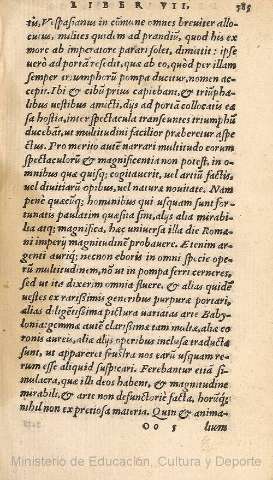 LIBER VII. 385
tus. Vespasianus in cõmune omnes breuiter allo-
cutus, milites quidem ad prandiũ, quod his ex
more ab imperatore parari solet, dimittit: ipse
uerò ad portã resedit, quæ ab eo, quòd per illam
semper triumphorũ pompa ducitur, nomen ac-
cepit. Ibi & cibũ prius capiebant, & triũpha-
libus uestibus amicti, dijs ad portã collocatis cæ
sa hostia, inter spectacula transeuntes triumphũ
ducebãt, ut multitudini facilior præberetur aspe
ctus. Pro merito autẽ narrari multitudo eorum
spectaculorũ & magnificentia non potest, in o-
mnibus quæ quisq; cogitauerit, uel artiũ factis,
uel diuitiarũ opibus, uel naturæ nouitate. Nam
penè quæcũq; hominibus qui usquam sunt for-
tunatis paulatim quæsita sint, alijs alia mirabi-
lia atq; magnifica, hæc uniuersa illa die Romani
imperij magnitudinẽ probauere. Etenim ar-
genti auriq; necnon eboris in omni specie ope-
rũ multitudinem, nõ ut in pompa ferri cerneres,
sed ut ita dixerim omnia fluere, & alias quidẽ
uestes ex rarissimis generibus purpuræ portari,
alias diligẽtissima pictura uariatas arte Baby-
lonia: gemmæ autẽ clarissimæ tam multæ, aliæ co
ronis aureis, aliæ alijs operibus inclusæ traductæ
sunt, ut appareret frustra nos earũ usquam ra-
rum esse aliquid suspicari. Ferebantur etiã si-
mulacra, quæ illi deos habent, & magnitudine
mirabili, & arte non defunctoriè facta, horũq;
nihil non ex pretiosa materia. Quin & anima-
Oo 5 lium
Ministerio de Educación, Cultura y Deporte